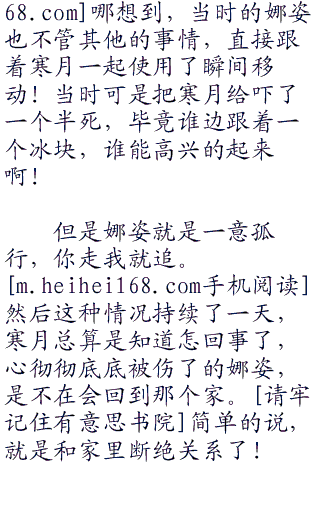 68.com]哪想到，当时的娜姿
也不管其他的事情，直接跟
着寒月一起使用了瞬间移
动！当时可是把寒月给吓了
一个半死，毕竟谁边跟着一
个冰块，谁能高兴的起来
啊！
但是娜姿就是一意孤
行，你走我就追。
[m.heihei168.com手机阅读]
然后这种情况持续了一天，
寒月总算是知道怎回事了，
心彻彻底底被伤了的娜姿，
是不在会回到那个家。[请牢
记住有意思书院]简单的说，
就是和家里断绝关系了！